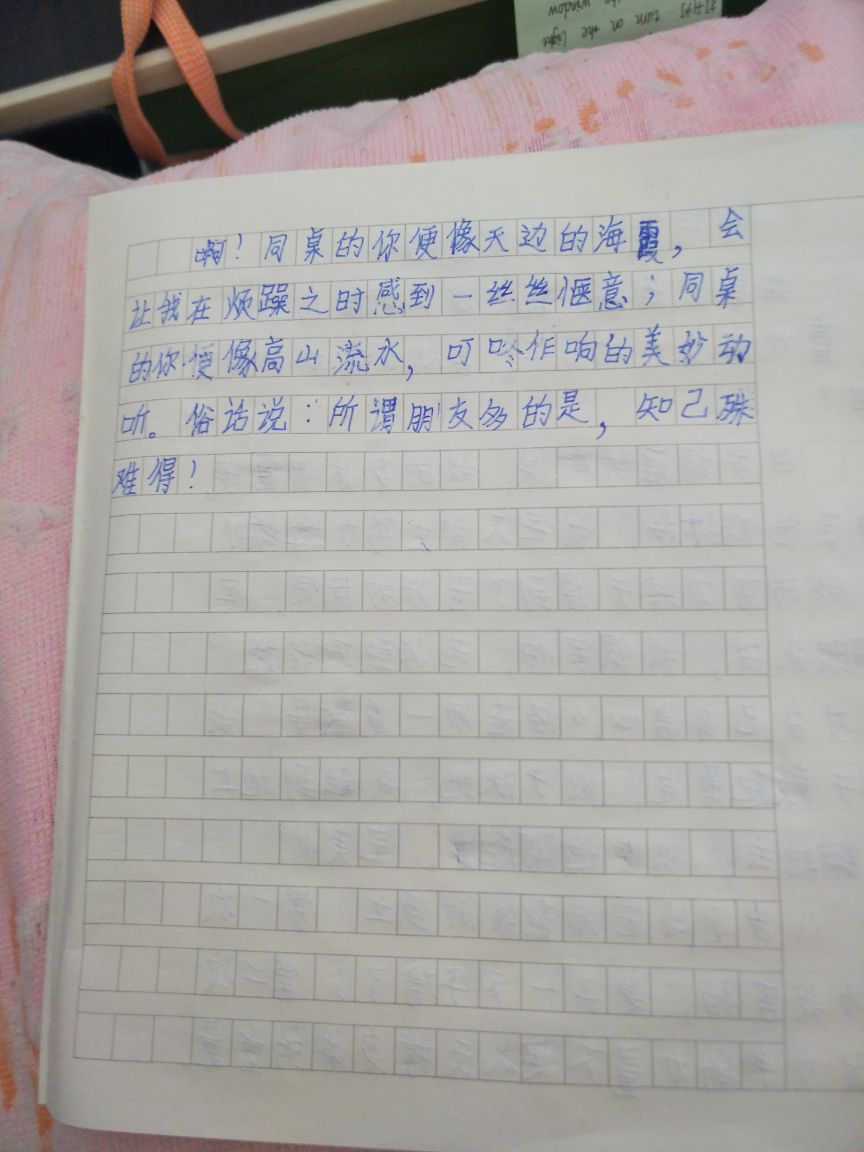 打开灯
turn on the light
the window
啊！同桌的你便像天边的海霞，会
让我在烦躁之时感到一丝丝惬意；同桌
的你便像高山流水，叮咚作响的美妙动
听。俗话说：所谓朋友多的是，知己殊
难得！